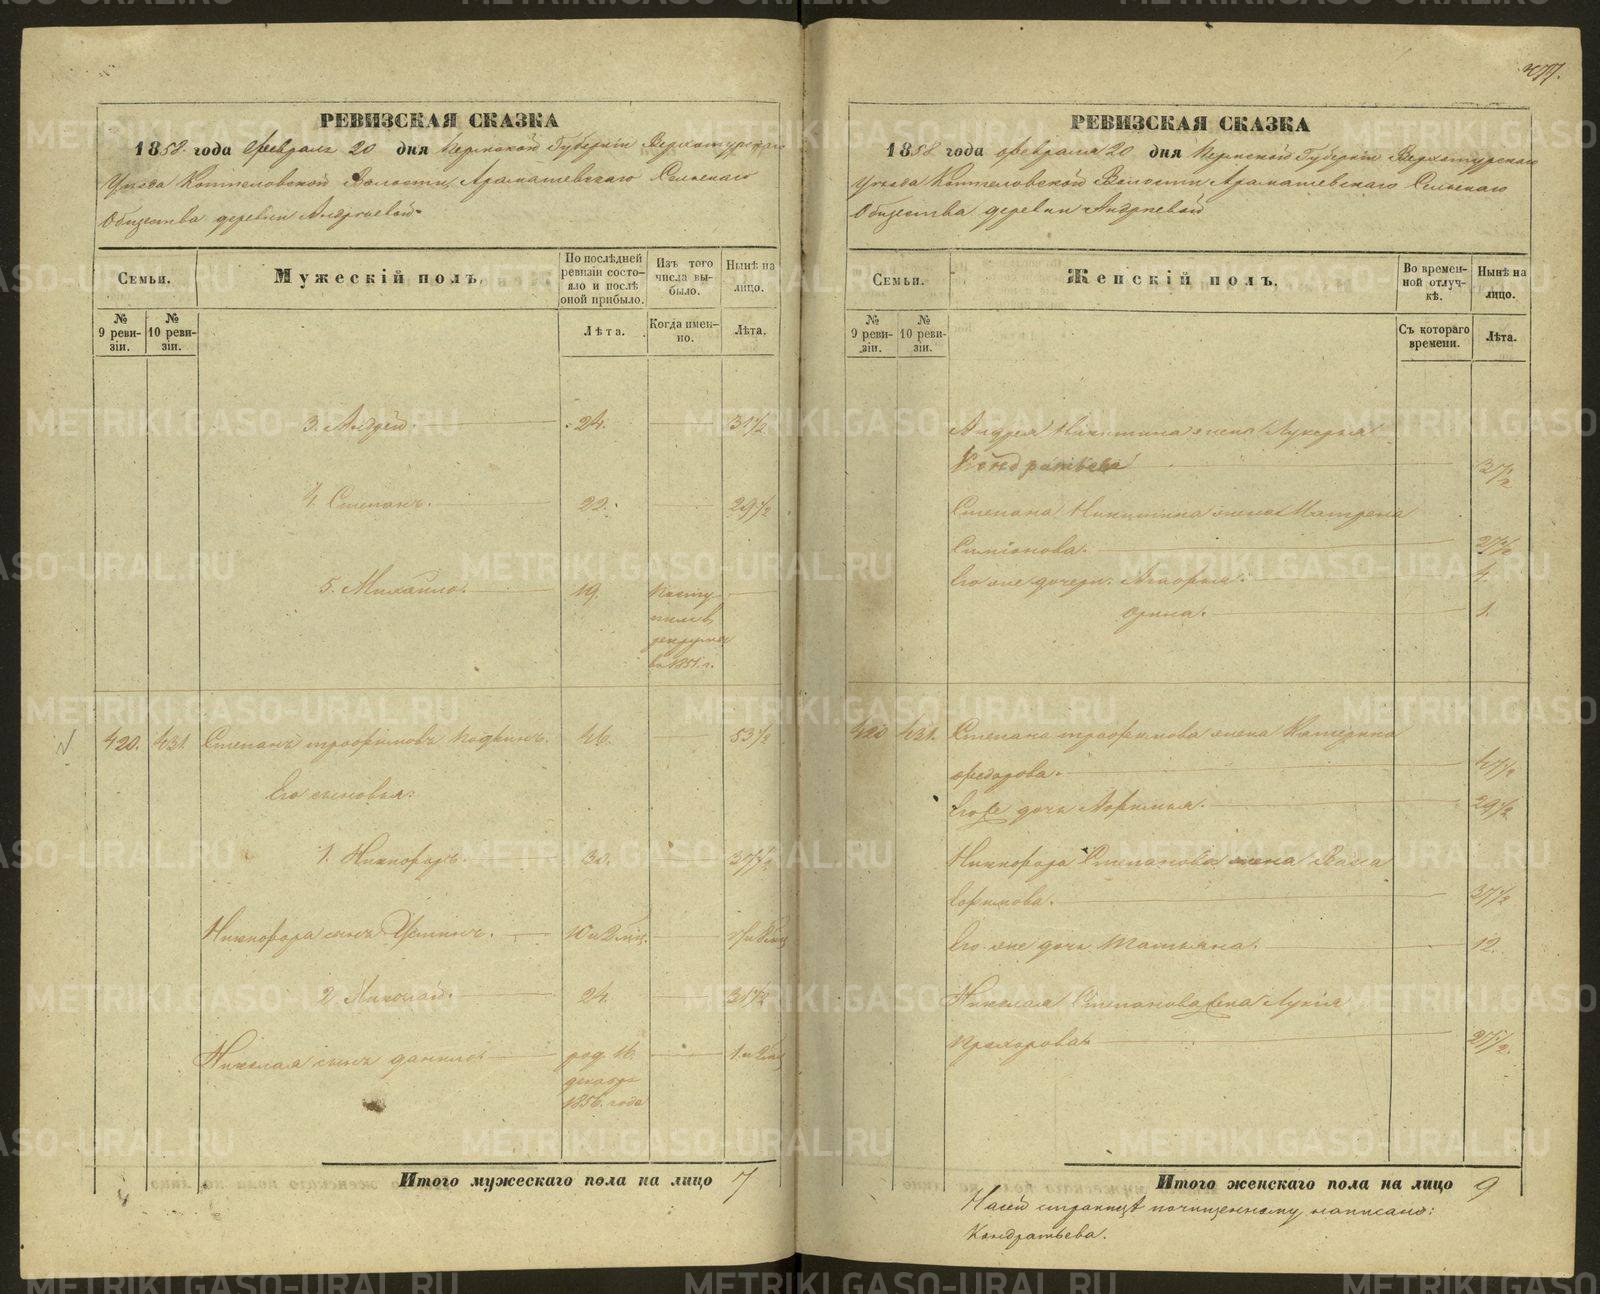 РЕВИЗСКАЯ СКАЗКА
1858 года Февраля 20 дня Пермской Губернiи Верхотурскаго
Уезда Коптеловской Волости, Арамашевскаго Сельскаго
Общества деревни Андреевой
Семьи.
Мужескiй полъ.
По послѣдней ревизiи состояло и послѣ оной прибыло.
Изъ того числа выбыло.
Нынѣ на лицо.
№ 9 ревизiи.
№ 10 ревизiи.
Лѣта.
Когда именно.
Лѣта.
3. Андрей. 24. 31 1/2
4. Степанъ. 22. 29 1/2
5. Михайло. 19. Посту
пилъ в
рекруты
въ 1851. г.
420. 431. Степанъ трофимовъ 46. 53 1/2
Его сыновья:
1. Никифоръ. 30. 37 1/2
Никифора сынъ Устинъ.
2. Николай. 24. 31 1/2
Николая сынъ данило род. 16.
декабря
1856. года
Итого мужескаго пола на лицо 7
477.
РЕВИЗСКАЯ СКАЗКА
1858 года февраля 20 дня Пермской Губернiи Верхотурскаго
Уезда Коптеловской Волости Арамашевскаго Сельскаго
Общества деревни Андреевой
Семьи.
Женскiй полъ.
Во временной отлучкѣ.
Нынѣ на лицо.
№ 9 ревизiи.
№ 10 ревизiи.
Съ котораго времени.
Лѣта.
Андрея Никитина жена Лукерья
Кондратьева
Степана Никитина жена Матрена
Симiонова.
Его же дочери. 4.
орина. 1.
420 431. Степана трофимова жена Катерина
федорова. 47 1/2
Его же дочь Афимья. 29 1/2
Никифора Степанова жена
Ефимова. 37 1/2
Его же дочь Татьяна. 12.
Николая Степанова жена
Прохорова 27 1/2.
Итого женскаго пола на лицо 9
На сей странице почищенному написано:
Кондратьева.
METRIKI.GASO-URAL.RU